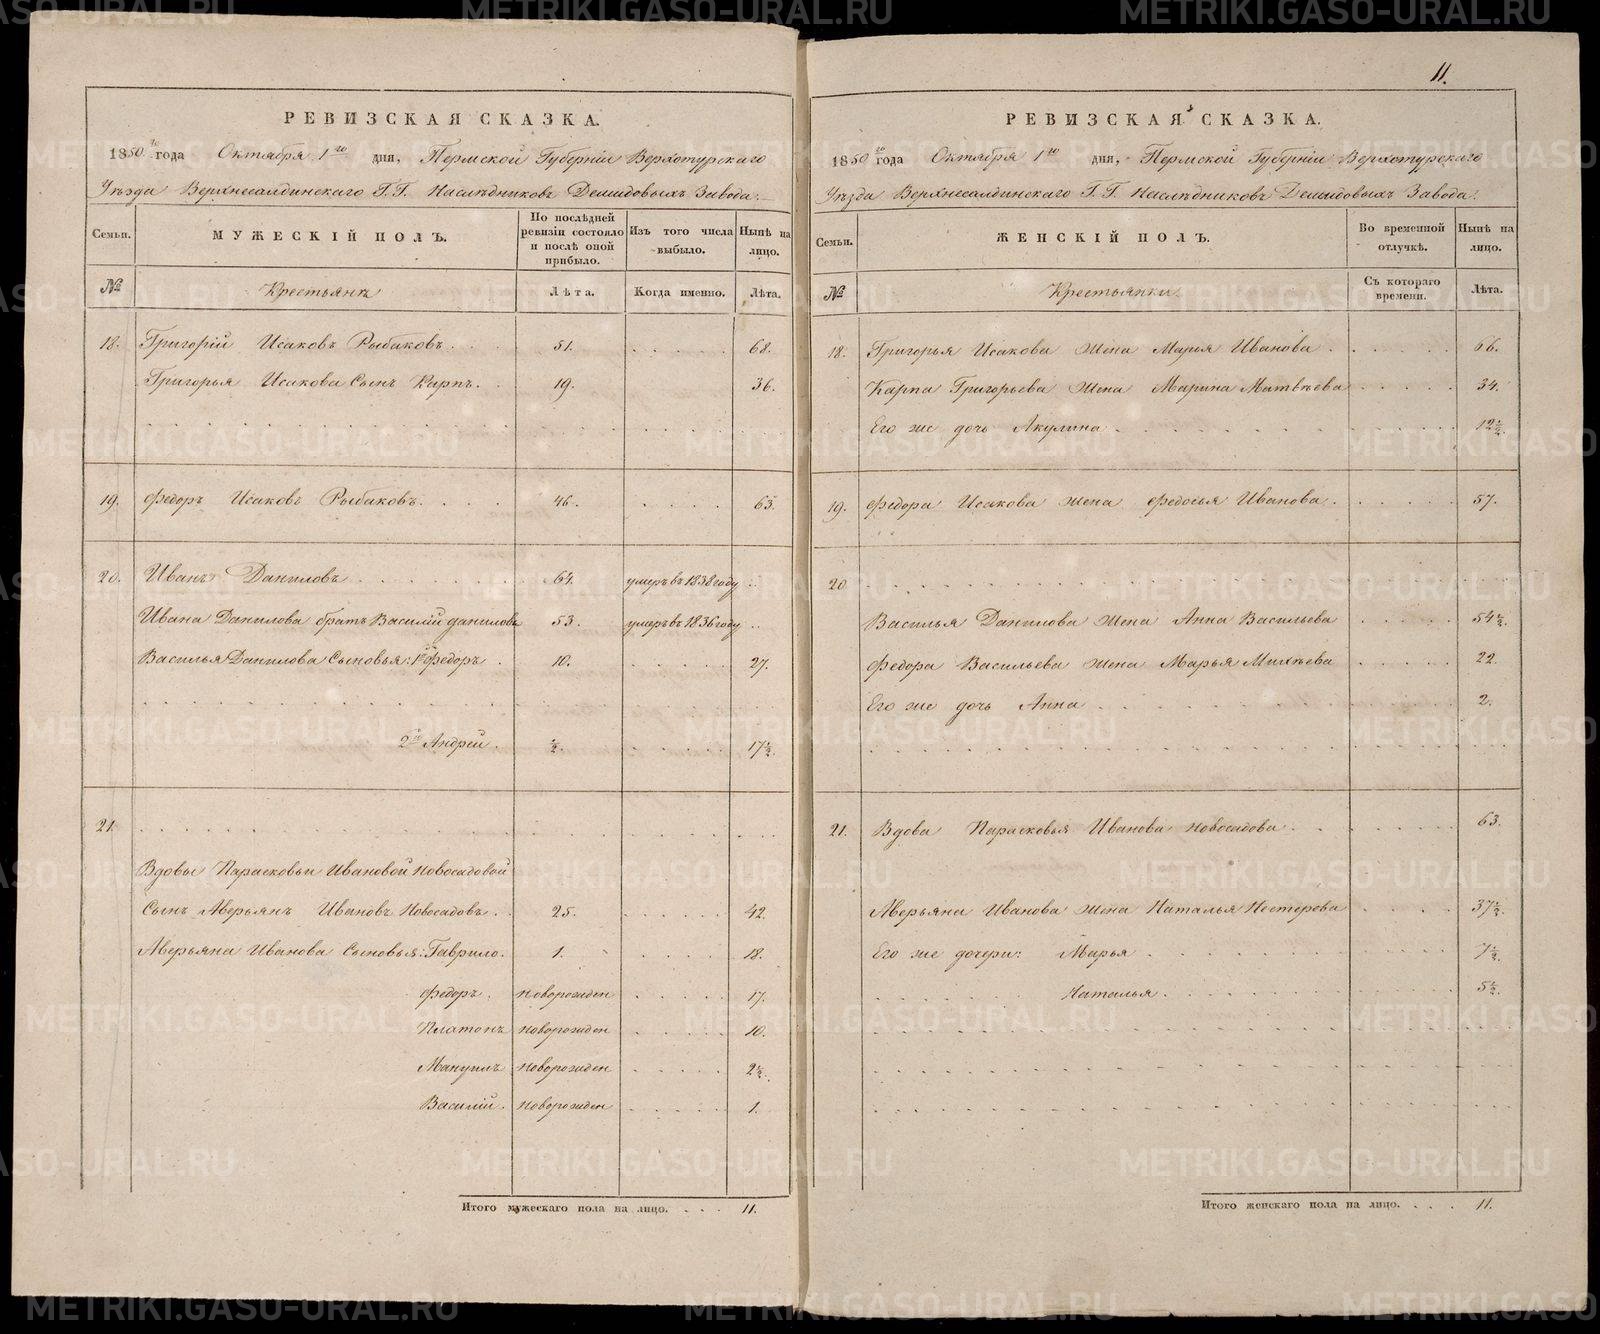 РЕВИЗСКАЯ СКАЗКА.
1850го года Октября 1го дня, Пермской Губерніи Верхотурскаго
Уѣзда Верхнесалдинскаго Г.Г. Наслѣдниковъ Демидовыхъ Завода.
Семьи. МУЖЕСКІЙ ПОЛЪ. По послѣдней ревизіи состояло и послѣ оной прибыло. Изъ того числа выбыло. Нынѣ на лицо.
№ Крестьянъ Лѣта. Когда именно. Лѣта.
18. Григорій Исаковъ Рыбаковъ. 51. 68.
Григорья Исакова Сынъ Карпъ. 19. 36.
19. Федоръ Исаковъ Рыбаковъ. 46. 63.
20. Иванъ Даниловъ 64. умеръ въ 1838 году
Ивана Данилова братъ Василій Даниловъ 53. умеръ въ 1836 году
Василья Данилова Сыновья: 1й Федоръ. 10. 27.
2й Андрей. ½. 17½.
21.
Вдовы Парасковьи Ивановой Новосадовой
Сынъ Аверьянъ Ивановъ Новосадовъ. 25. 42.
Аверьяна Иванова Сыновья: Гаврило. 1. 18.
Федоръ. новорожден 17.
Платонъ новорожден 10.
Мануилъ новорожден 2½.
Василій. новорожден 1.
Итого мужескаго пола на лицо. 11.
11.
РЕВИЗСКАЯ СКАЗКА.
1850го года Октября 1го дня, Пермской Губерніи Верхотурскаго
Уѣзда Верхнесалдинскаго Г.Г. Наслѣдниковъ Демидовыхъ Завода.
Семьи. ЖЕНСКІЙ ПОЛЪ. Во временной отлучкѣ. Нынѣ на лицо.
№ Крестьянки. Съ котораго времени. Лѣта.
18. Григорья Исакова жена Марья Иванова. 66.
Карпа Григорьева жена Марина Матвѣева 34.
Его же дочь Акулина 12½.
19. Федора Исакова жена Федосья Иванова. 57.
20
Василья Данилова жена Анна Васильева 54½.
Федора Васильева жена Марья Михѣева 22.
Его же дочь Анна 2.
21. Вдова Парасковья Иванова Новосадова. 63.
Аверьяна Иванова жена Наталья Нестерова 37½.
Его же дочери: Марья 7½.
Наталья. 5½.
Итого женскаго пола на лицо. 11.
METRIKI.GASO-URAL.RU